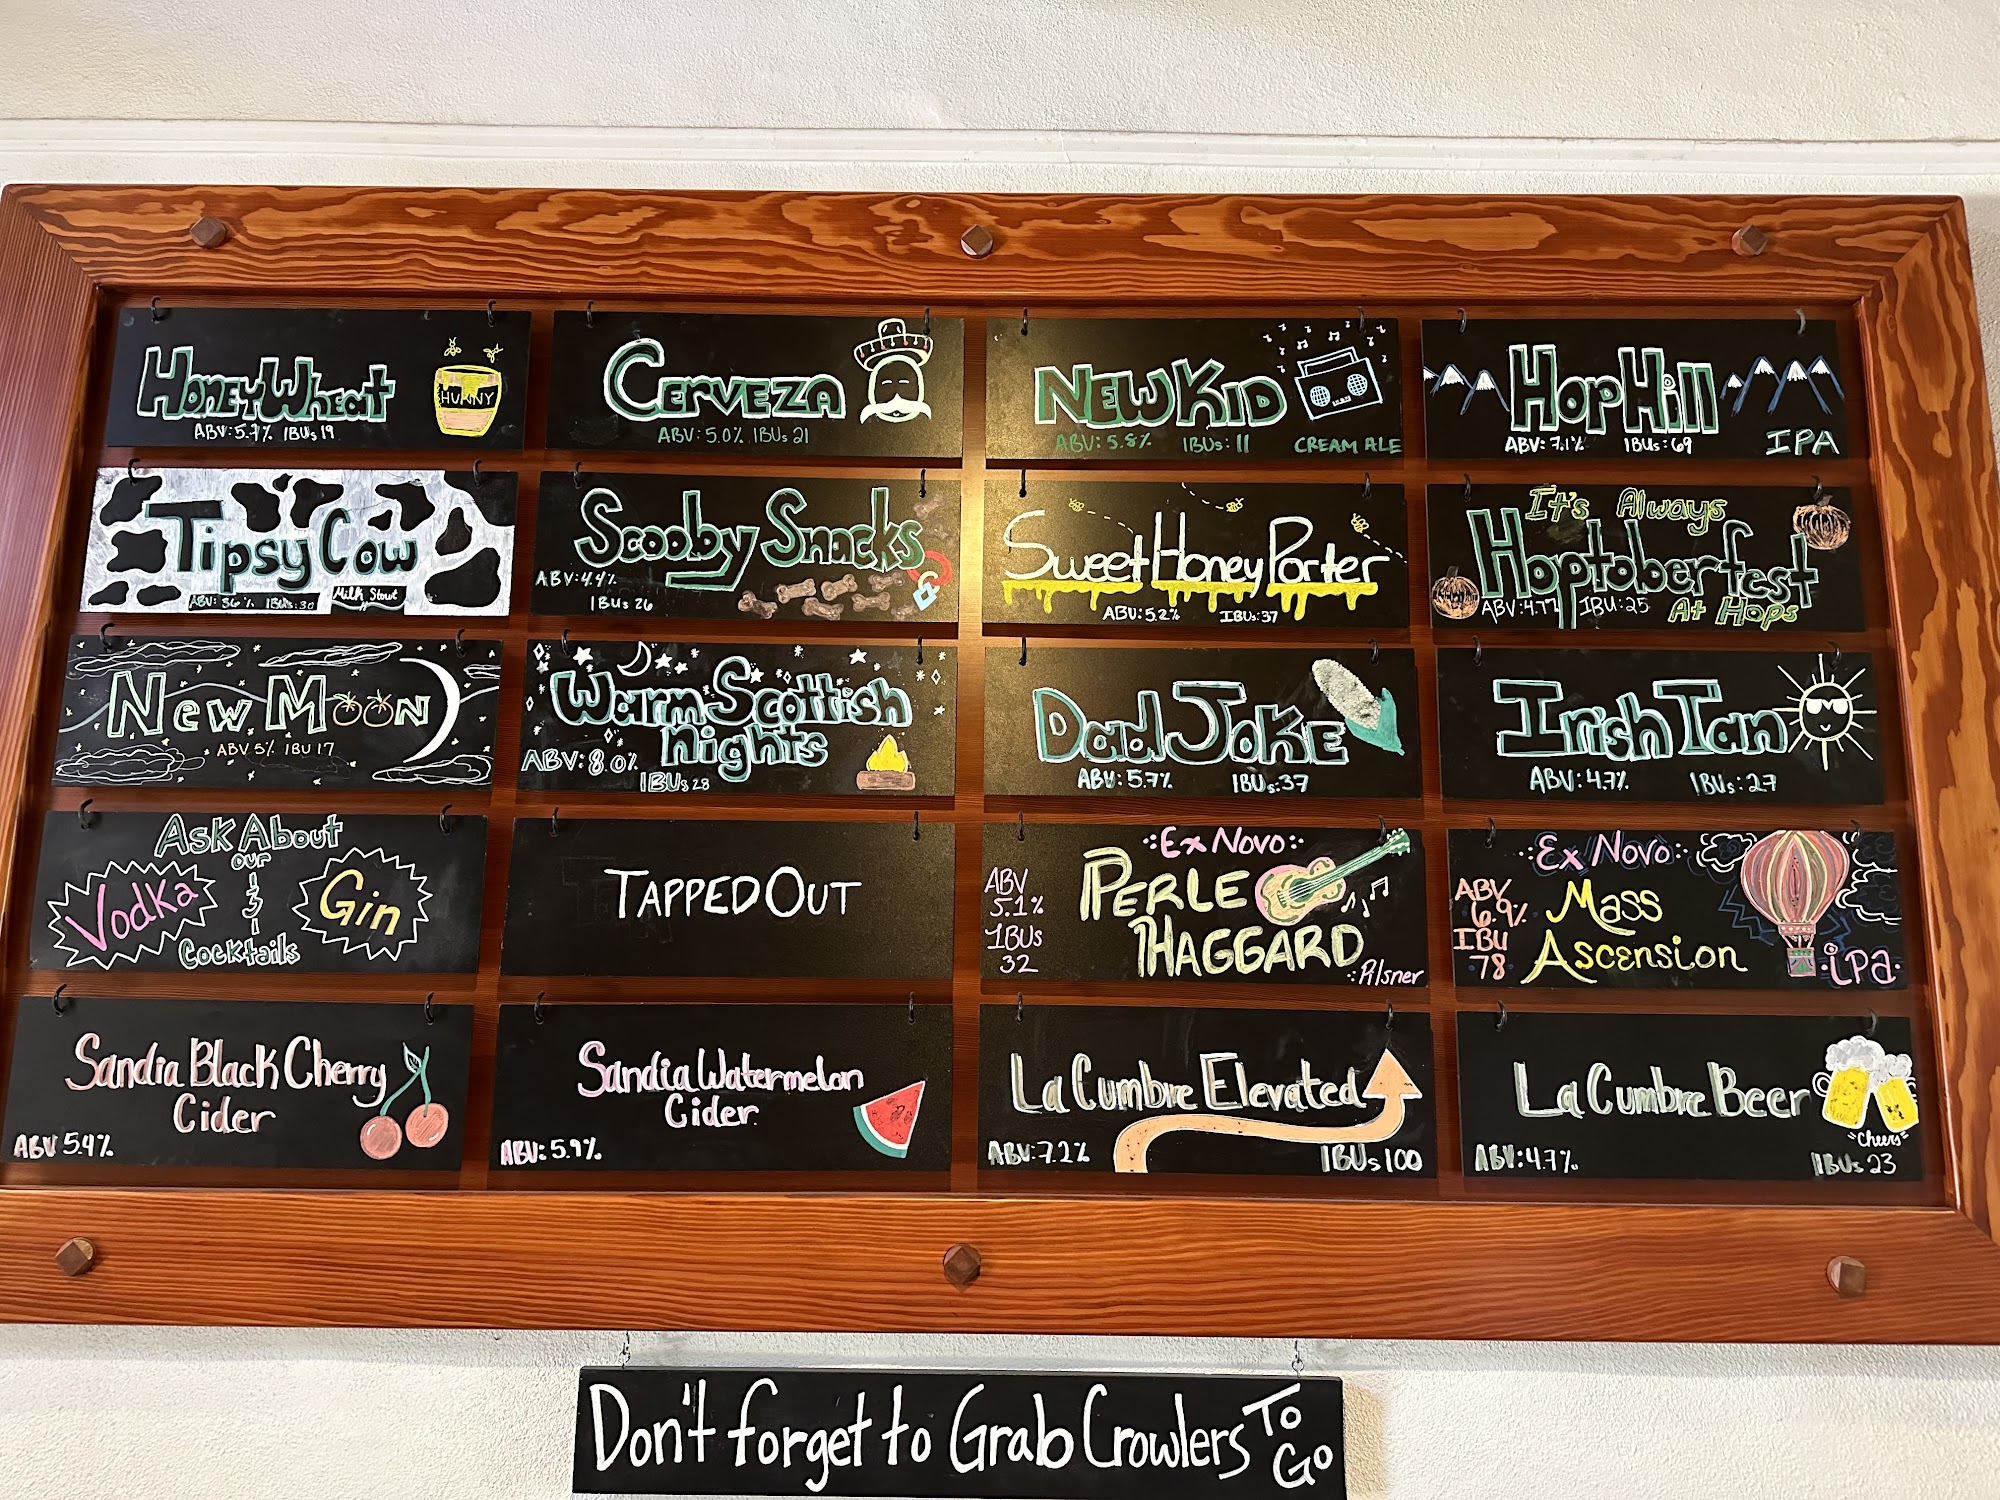 HoneyWheat
HUNNY
ABV: 5.7% IBUs 19
Cerveza
ABV: 5.0% IBUs 21
New Kid
ABV: 5.8% IBUs: 11 CREAM ALE
Hop Hill
ABV: 7.1% IBUs: 69 IPA
Tipsy Cow
ABV: 5.6% IBUs: 30 Milk Stout
Scooby Snacks
ABV: 4.4%
IBUs 26
Sweet Honey Porter
ABV: 5.2% IBUs: 37
It's Always
Hoptoberfest
ABV: 4.77 IBU: 25 At Hops
New Moon
ABV 5% IBU 17
Warm Scottish
Nights
ABV: 8.0%
IBUs 28
Dad Joke
ABV: 5.7% IBUs: 37
Irish Tan
ABV: 4.7% IBUs: 27
Ask About
our
Vodka & Gin
Cocktails
TAPPED OUT
Ex Novo
PERLE
HAGGARD
Pilsner
ABV
5.1%
IBUs
32
Ex Novo
Mass
Ascension
ipa
ABV
6.9%
IBU
78
Sandia Black Cherry
Cider
ABV 5.4%
Sandia Watermelon
Cider
ABV: 5.9%
La Cumbre Elevated
ABV: 7.2% IBUs 100
La Cumbre Beer
"Cheers"
ABV: 4.7% IBUs 23
Don't forget to Grab Crowlers To Go